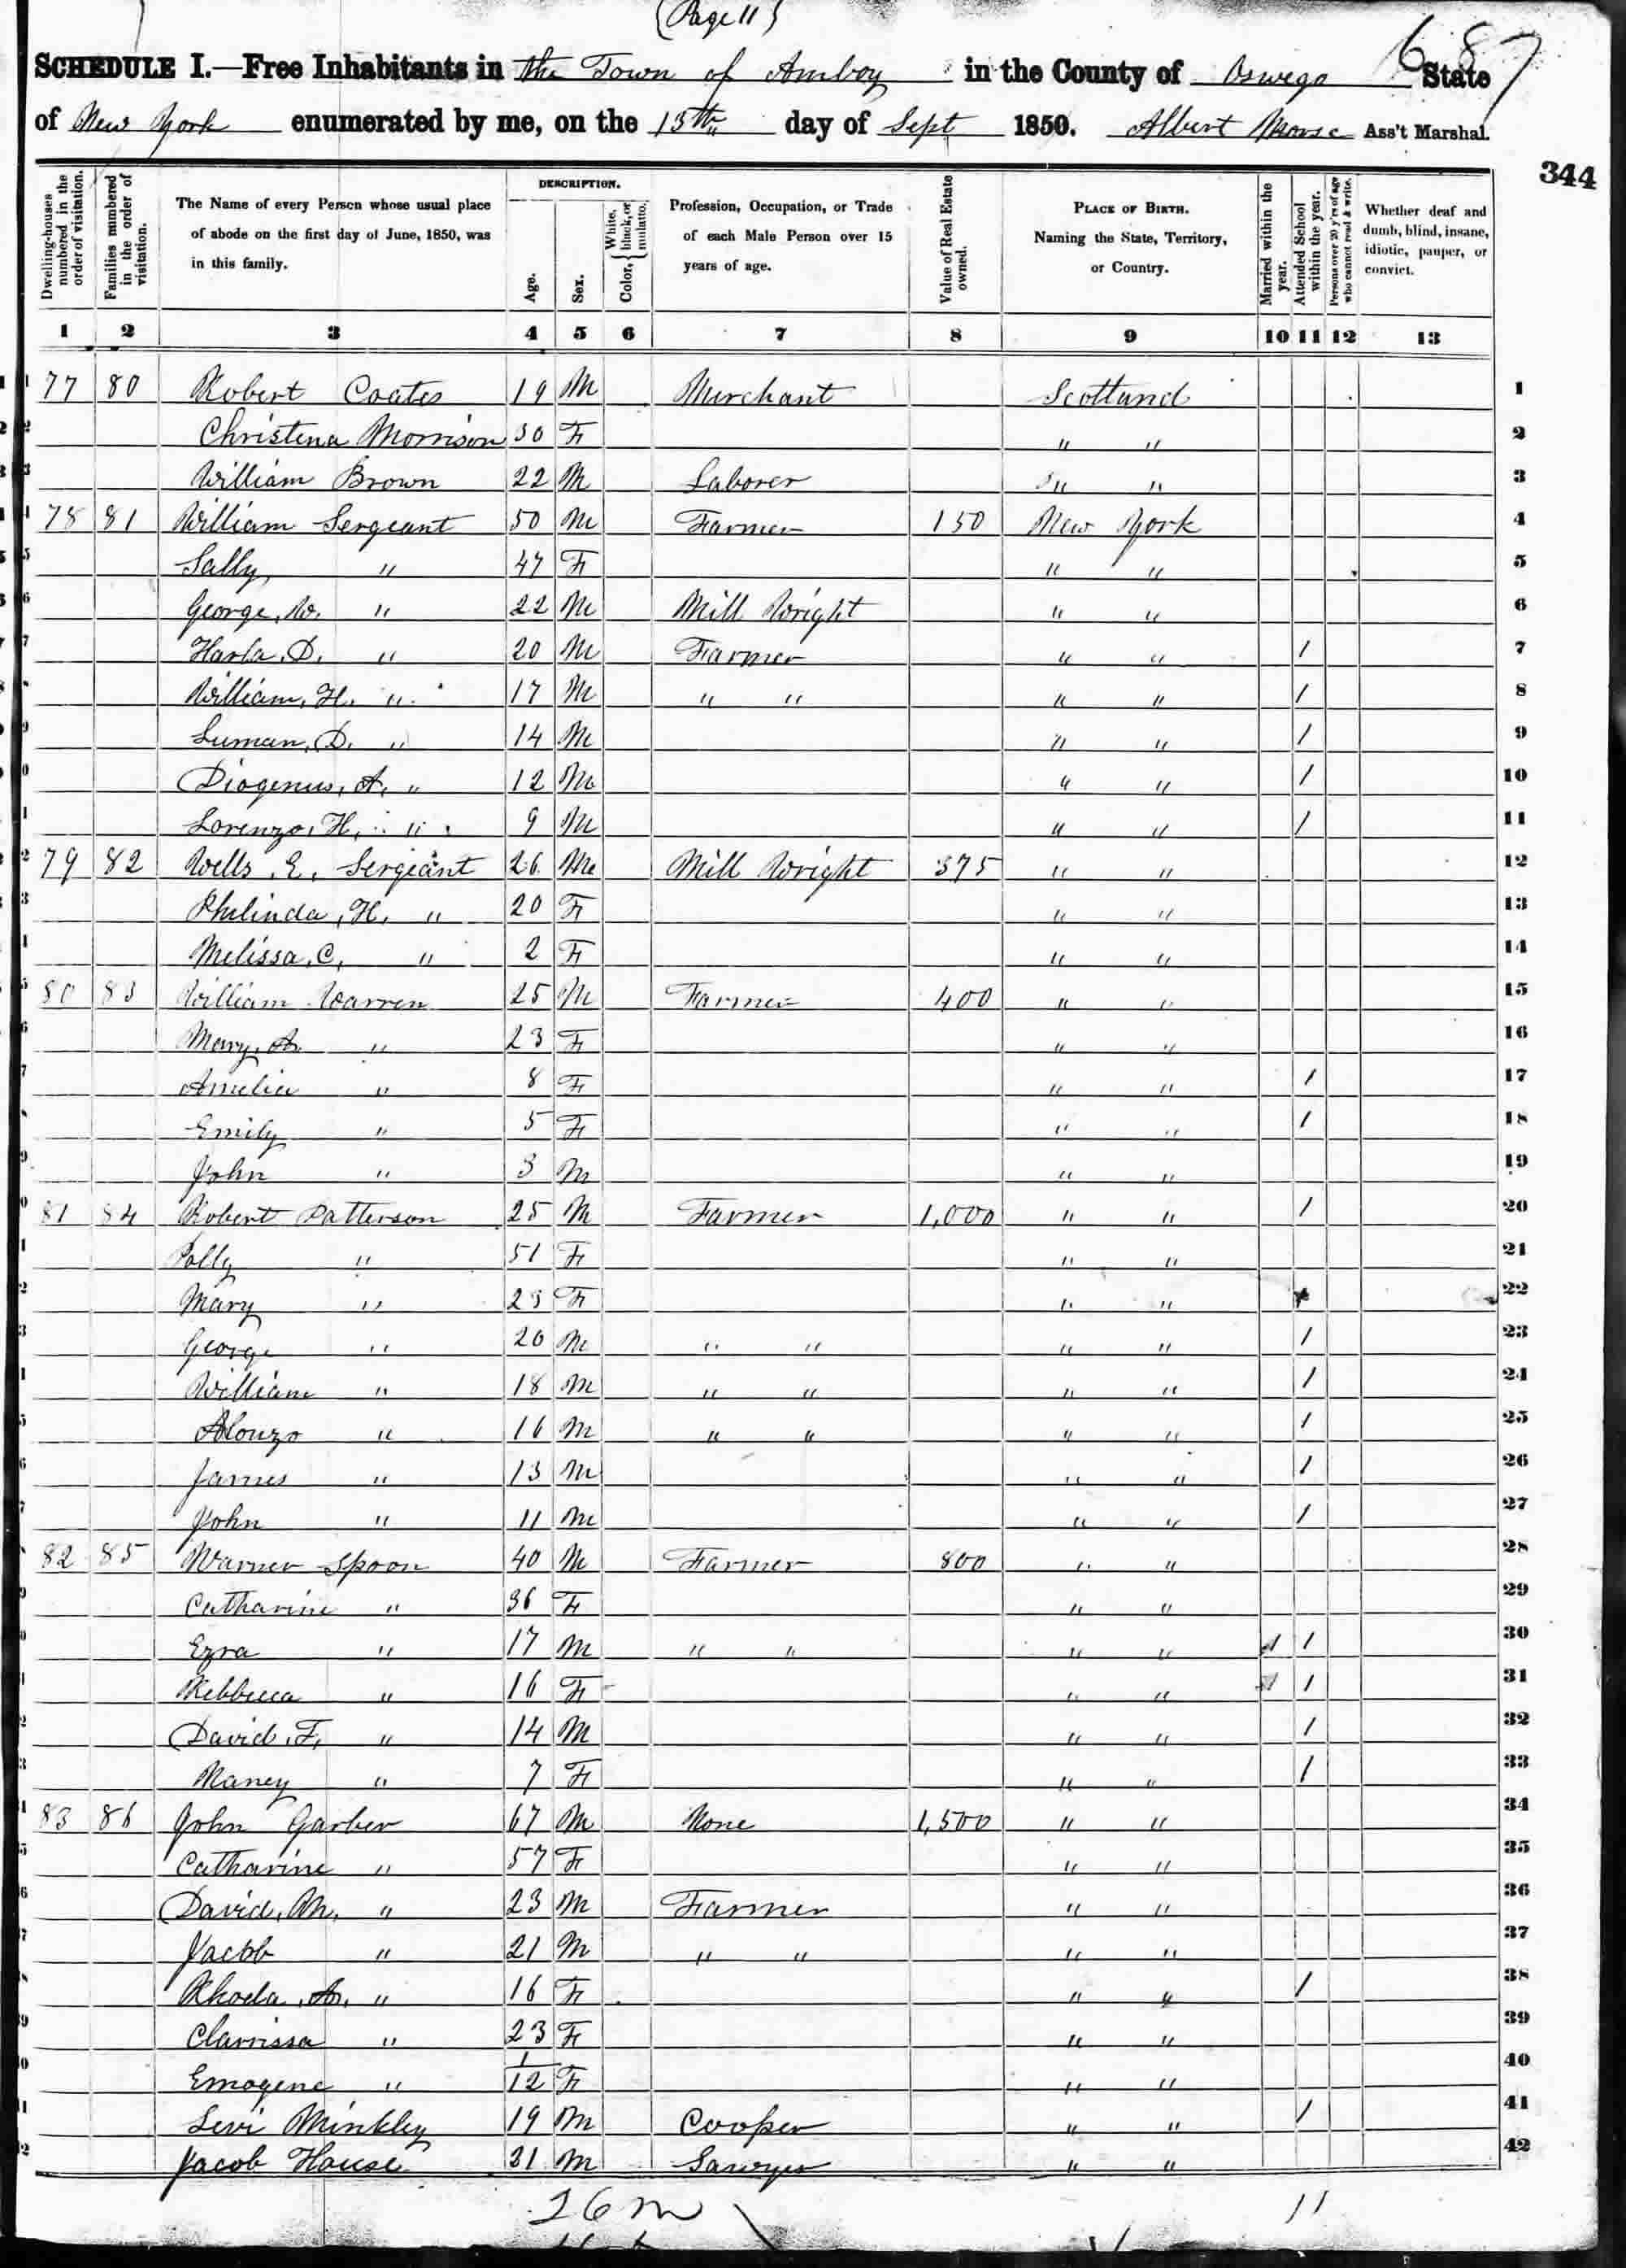 (Page 11)
687
SCHEDULE I.—Free Inhabitants in the Town of Amboy in the County of Oswego State
of New York enumerated by me, on the 13th day of Sept 1850. Albert Morse Ass't Marshal.
344
Dwelling-houses numbered in the order of visitation.
Families numbered in the order of visitation.
The Name of every Person whose usual place of abode on the first day of June, 1850, was in this family.
DESCRIPTION.
Age.
Sex.
Color, { White, black, or mulatto.
Profession, Occupation, or Trade of each Male Person over 15 years of age.
Value of Real Estate owned.
PLACE OF BIRTH. Naming the State, Territory, or Country.
Married within the year.
Attended School within the year.
Persons over 20 y'rs of age who cannot read & write.
Whether deaf and dumb, blind, insane, idiotic, pauper, or convict.
1 2 3 4 5 6 7 8 9 10 11 12 13
77 80 Robert Coates 19 M Merchant Scotland 1
Christena Morrison 30 F " " 2
William Brown 22 M Laborer " " 3
78 81 William Sergeant 50 M Farmer 150 New York 4
Sally " 47 F " " 5
George, W. " 22 M Mill Wright " " 6
D. " 20 M Farmer " " / 7
William, H. " 17 M " " " " / 8
Luman, D. " 14 M " " / 9
Diogenus, A. " 12 M " " / 10
Lorenzo, H, " 9 M " " / 11
79 82 Wells, E. Sergeant 26 M Mill Wright 375 " " 12
Philinda, H. " 20 F " " 13
Melissa, C, " 2 F " " 14
80 83 William Warren 25 M Farmer 400 " " 15
Mary, A. " 23 F " " 16
Amelia " 8 F " " / 17
Emily " 5 F " " / 18
John " 3 M " " 19
81 84 Robert Patterson 25 M Farmer 1,000 " " / 20
Polly " 51 F " " 21
Mary " 23 F " " 22
George " 20 M " " " " / 23
William " 18 M " " " " / 24
Alonzo " 16 M " " " " / 25
James " 13 M " " / 26
John " 11 M " " / 27
82 85 Warner Spoon 40 M Farmer 800 " " 28
Catharine " 36 F " " 29
Ezra " 17 M " " " " / 30
Rebbecca " 16 F " " / 31
David, F, " 14 M " " / 32
Naney " 7 F " " / 33
83 86 John Garber 67 M None 1,500 " " 34
Catharine " 57 F " " 35
David, M, " 23 M Farmer " " 36
Jacob " 21 M " " " " 37
Rhoda, A, " 16 F " " / 38
Clarrissa " 23 F " " 39
Emogene " 1/12 F " " 40
Levi Minkley 19 M Cooper " " / 41
Jacob House 21 M Sawyer " " 42
26 m 11